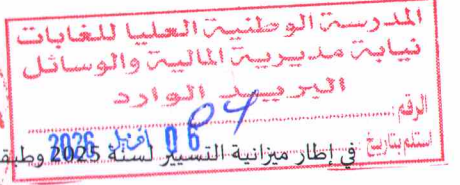 المدرسة الوطنية العليا للغابات
نيابة مديرية المالية والوسائل
البريد الوارد
الرقم:
استلم بتاريخ 06 أفريل 2026
في إطار ميزانية التسيير لسنة 2025 وطبقا